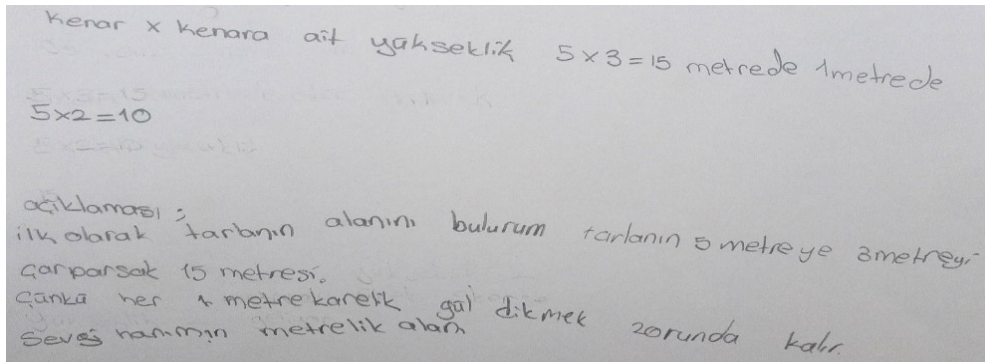 Kenar x Kenara ait yükseklik 5x3=15 metrede 1metrede
5x2=10
açıklaması;
ilk olarak tarlanın alanını bulurum tarlanın 5 metreye 3metreyi
çarparsak 15 metresi.
Çünkü her 1 metrekarelik gül dikmek zorunda kalır.
Sevgi hanımın metrelik alanı